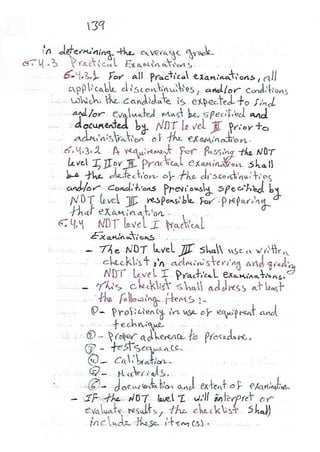 139
in determining the average grade
6.4.3 Practical Examinations
6.4.3.1 For all practical examinations, all
applicable discontinuities, and/or conditions
which the candidate is expected to find
and/or evaluated must be specified and
documented by NDT level III prior to
administration of the examination.
6.4.3.2 A requirement for Passing the NDT
level I, II or III practical examination shall
be the detection of the discontinuities
and/or conditions previously specified by
NDT level III responsible for preparing
that examination.
6.4.4 NDT level I practical
Examinations
- The NDT level III shall use a written
checklist in administering and grading
NDT level I practical examinations.
- This checklist shall address at least
the following items :-
①- proficiency in use of equipment and
technique
②- proper adherence to procedure.
③- test sequence.
④- Calibration.
⑤- Materials.
⑥- documentation and extent of examination
- IF the NDT level I will interpret or
evaluate results, the checklist shall
include these item(s).